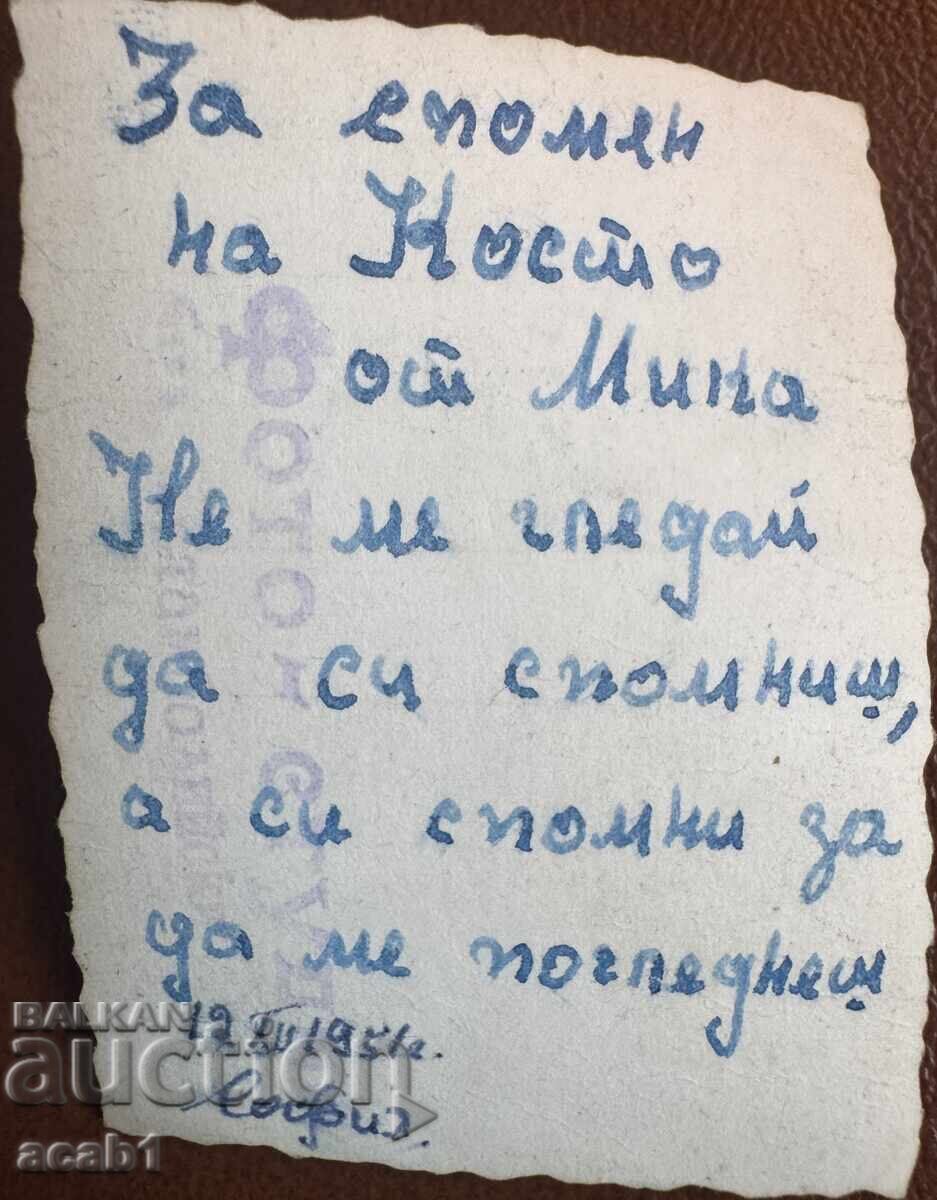 За спомен
на Косто
от Мина
Не ме гледай
да си спомниш,
а си спомни за
да ме погледнеш
12 1951г.
София.
ФОТО-СТУД
BALKAN
auction
acab1